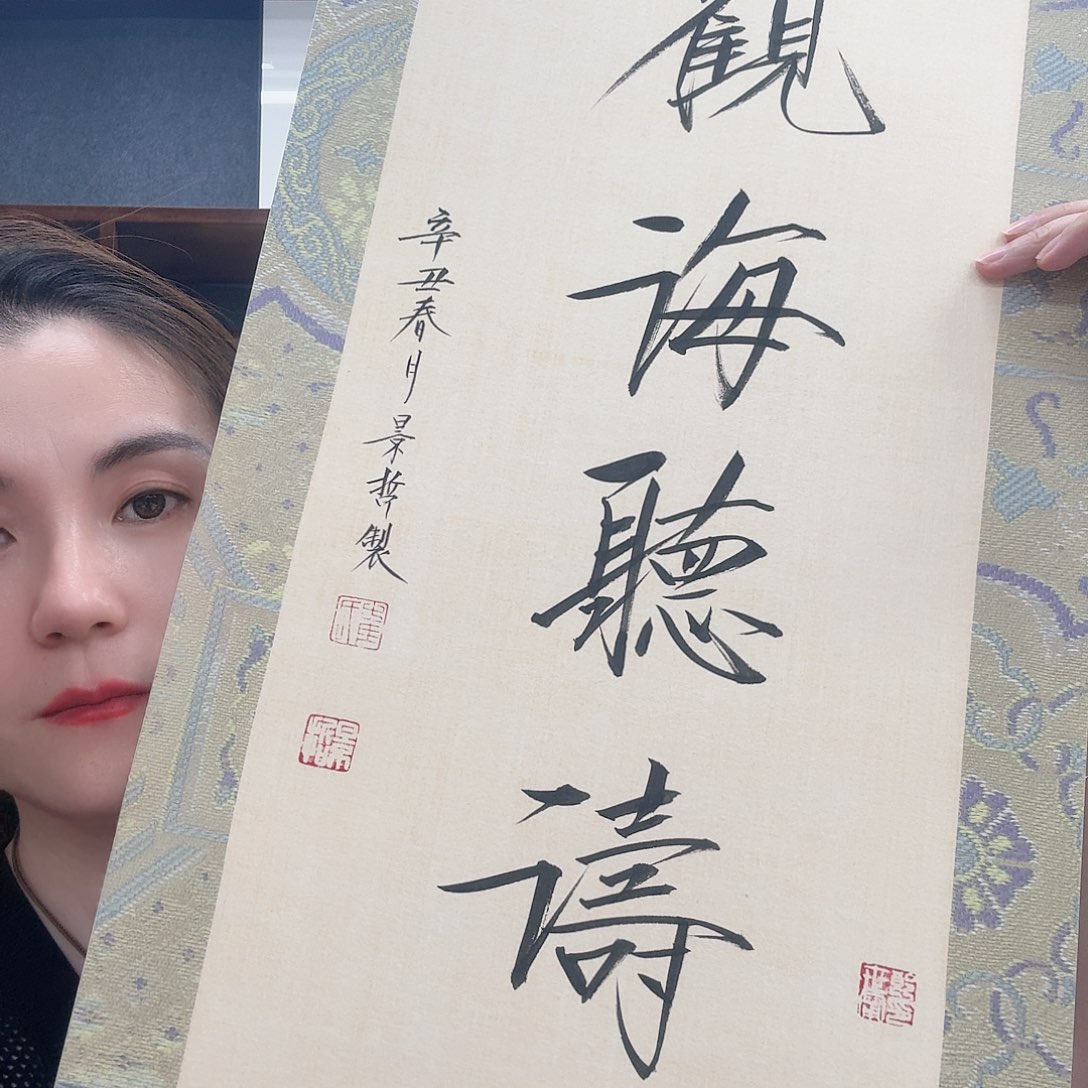 觀海聽濤
辛丑春月景哲製